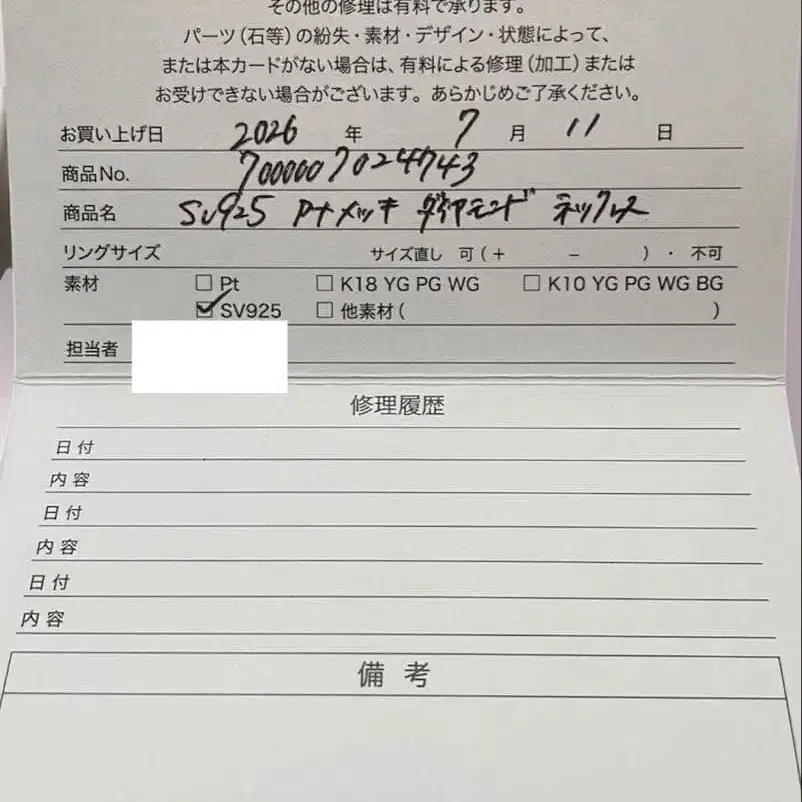 その他の修理は有料で承ります。
パーツ(石等)の紛失・素材・デザイン・状態によって、
または本カードがない場合は、有料による修理(加工)または
お受けできない場合がございます。あらかじめご了承ください。
お買い上げ日 2026 年 7 月 11 日
商品No. 7000007024743
商品名 SV925 Ptメッキ ダイヤモンド ネックレス
リングサイズ サイズ直し 可(+ − )・不可
素材 □ Pt □ K18 YG PG WG □ K10 YG PG WG BG
☑ SV925 □ 他素材( )
担当者
修理履歴
日付
内容
日付
内容
日付
内容
備考